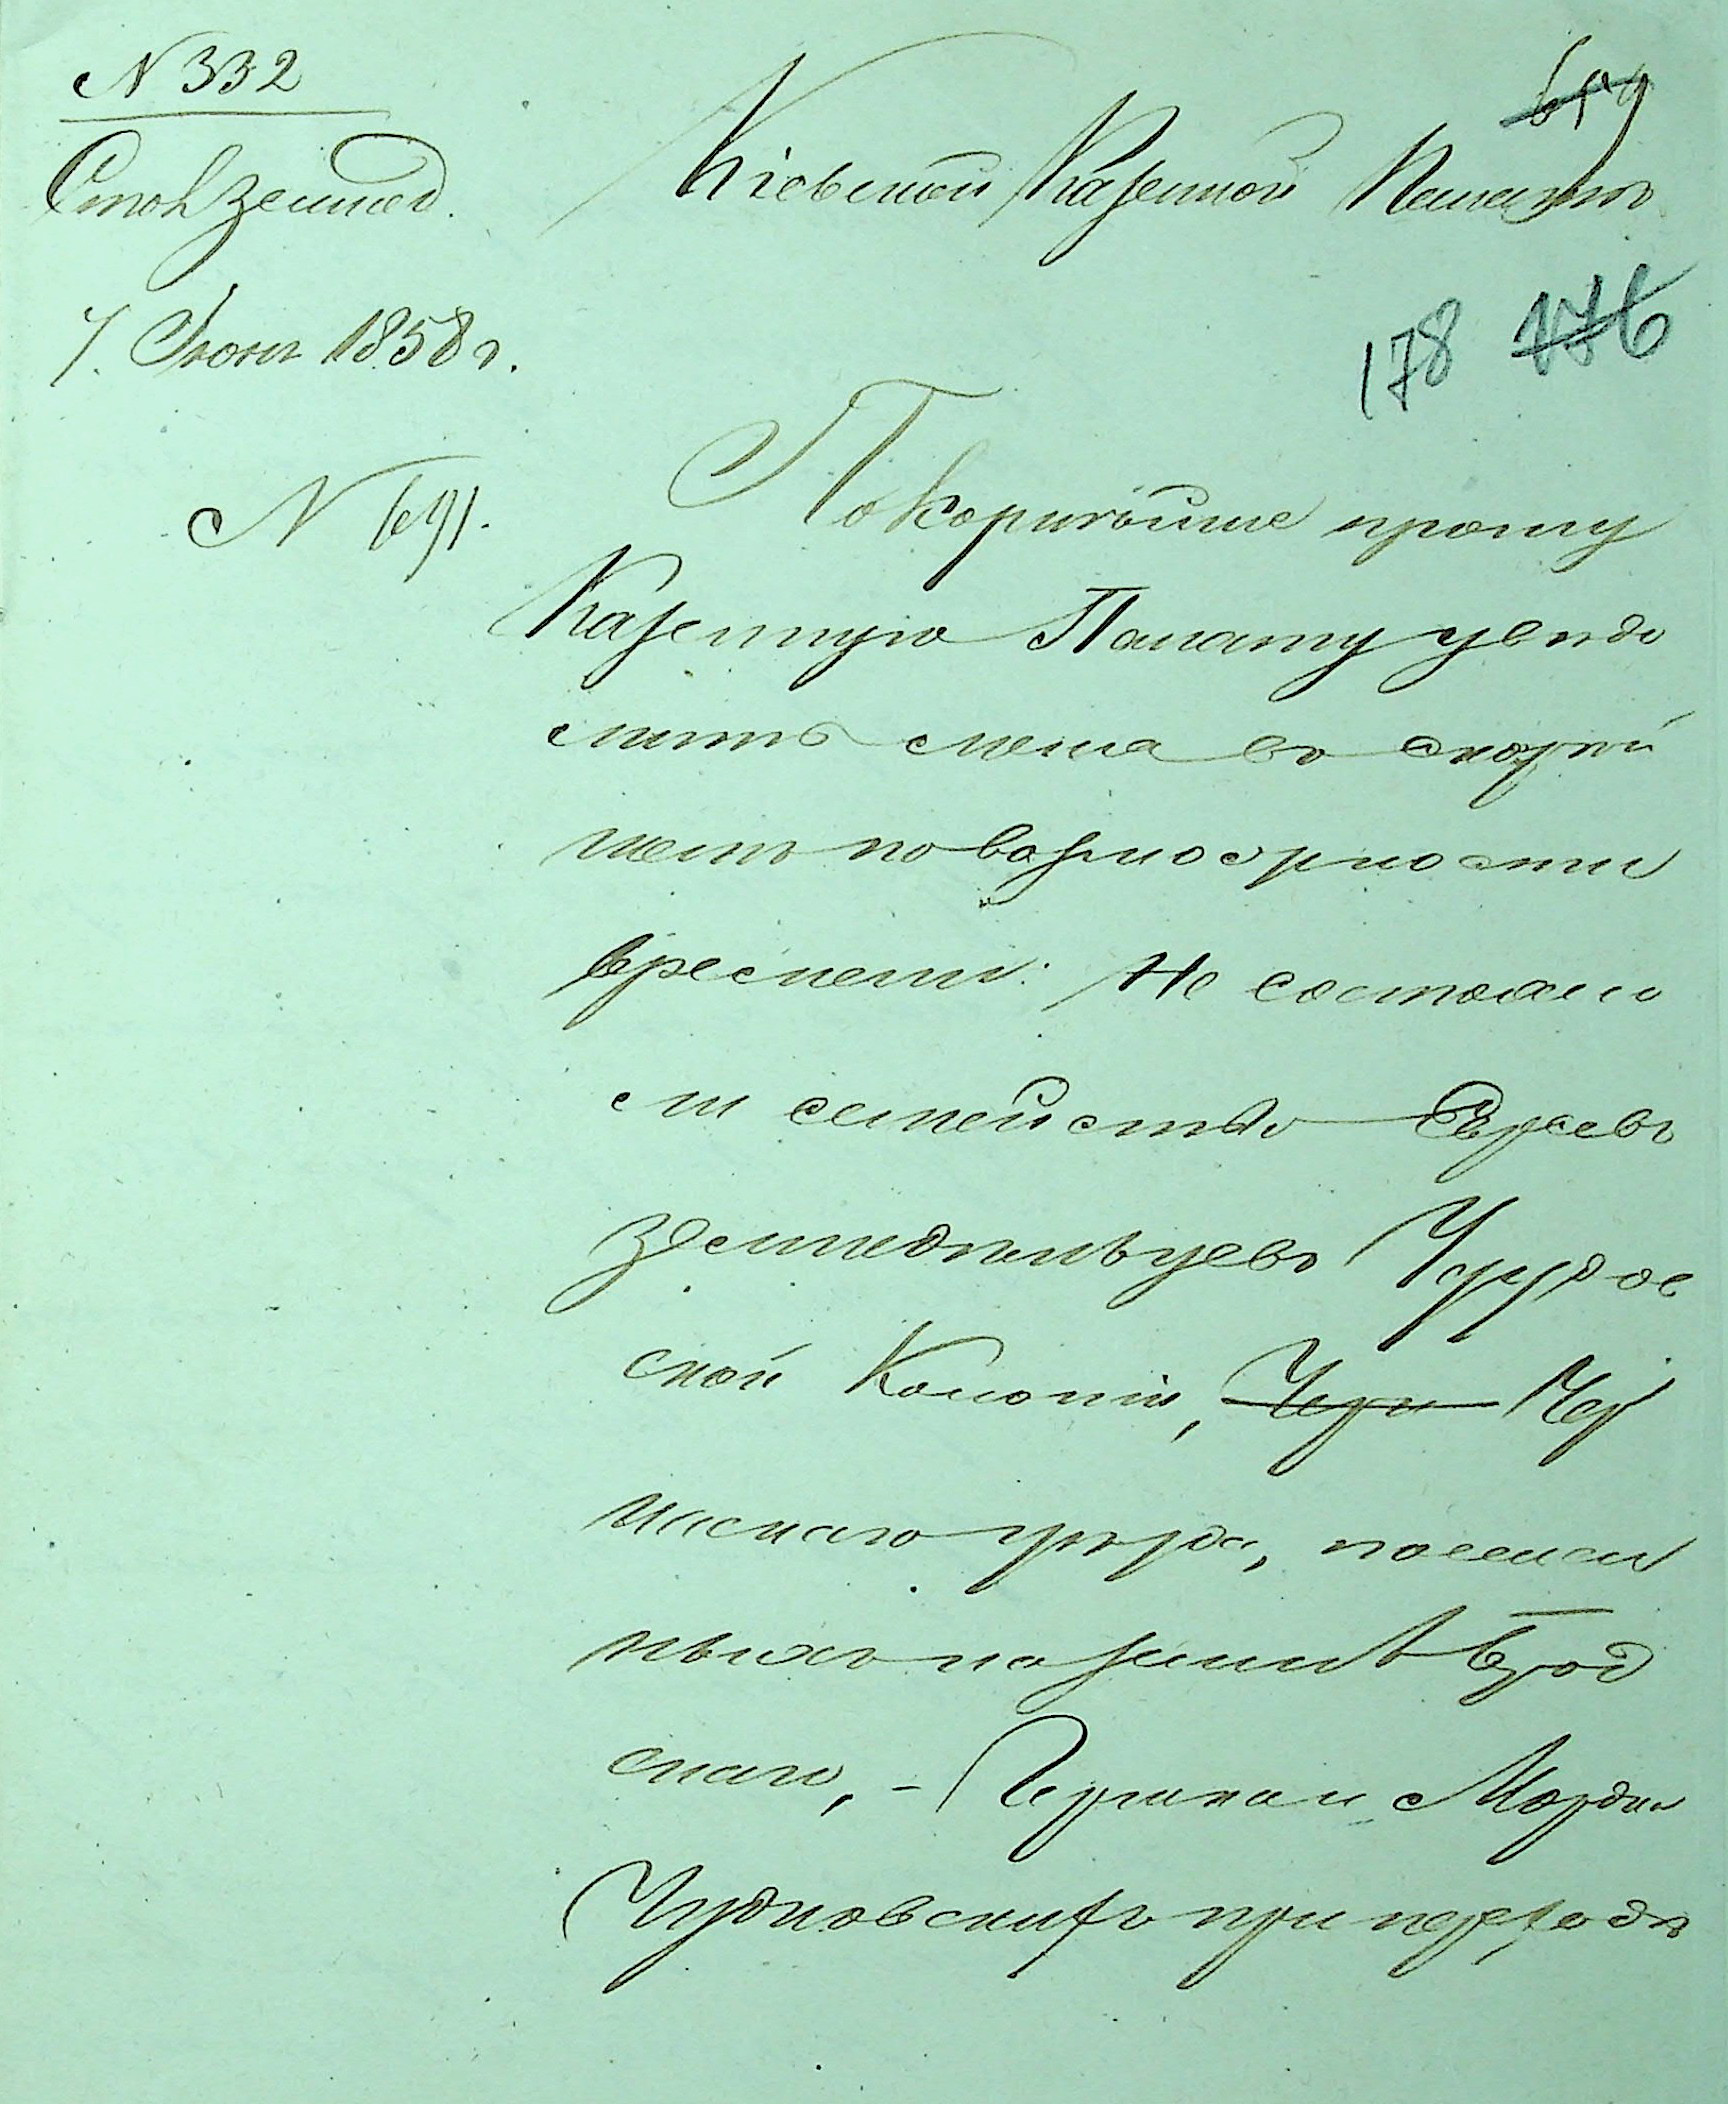 N 332
Стол земльд.
Кіевской Казенной Палатѣ
7. Іюня 1858 г.
178 176
N 691.
Покорнѣйше прошу
Казенную Палату увѣдо
мить меня въ скорѣй
шемъ по возможности
времени: Не состояло
ли семейство Евреевъ
земледѣльцевъ
ской Колоніи, Черн Чер
каскаго уѣзда, поселен
ныхъ на землѣ Брод
скаго, - Гершка и Мордка
Чудновскихъ при переходѣ